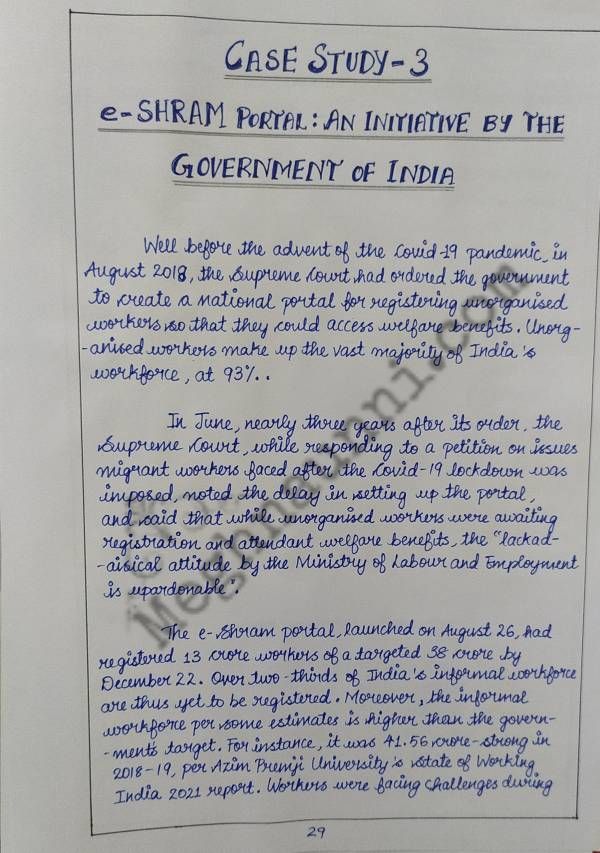 CASE STUDY-3
e-SHRAM PORTAL: AN INITIATIVE BY THE
GOVERNMENT OF INDIA
Well before the advent of the Covid-19 pandemic, in
August 2018, the Supreme Court had ordered the government
to create a national portal for registering unorganised
workers so that they could access welfare benefits. Unorg-
-anised workers make up the vast majority of India's
workforce, at 93%..
In June, nearly three years after its order, the
Supreme Court, while responding to a petition on issues
migrant workers faced after the Covid-19 lockdown was
imposed, noted the delay in setting up the portal,
and said that while unorganised workers were awaiting
registration and attendant welfare benefits, the "lackad-
-aisical attitude by the Ministry of Labour and Employment
is upardonable".
The e-Shram portal, launched on August 26, had
registered 13 crore workers of a targeted 38 crore by
December 22. Over two-thirds of India's informal workforce
are thus yet to be registered. Moreover, the informal
workforce per some estimates is higher than the govern-
-ment's target. For instance, it was 41.56 crore-strong in
2018-19, per Azim Premji University's State of Working
India 2021 report. Workers were facing challenges during
29